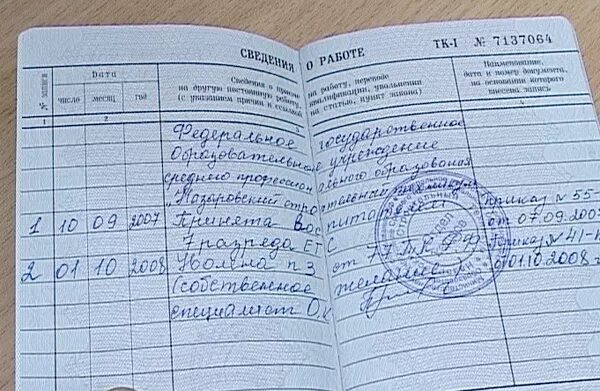 СВЕДЕНИЯ О РАБОТЕ ТК-I № 7137064
№ записи Дата Сведения о приеме на работу, переводе Наименование,
на другую постоянную работу, квалификации, увольнении дата и номер документа,
число месяц год (с указанием причин и ссылкой на статью, пункт закона) на основании которого внесена запись
1 2 3
Федеральное государственное
образовательное учреждение
среднего профессионального образования
"Назаровский строительный техникум"
1 10 09 2007 Принята воспитателем Приказ № 55-
7 разряда ЕТС от 07.09.2007
2 01 10 2008 Уволена п 3 ст 77 ТК РФ Приказ № 41-
(собственное желание) от 01.10.2008 г
специалист ОК